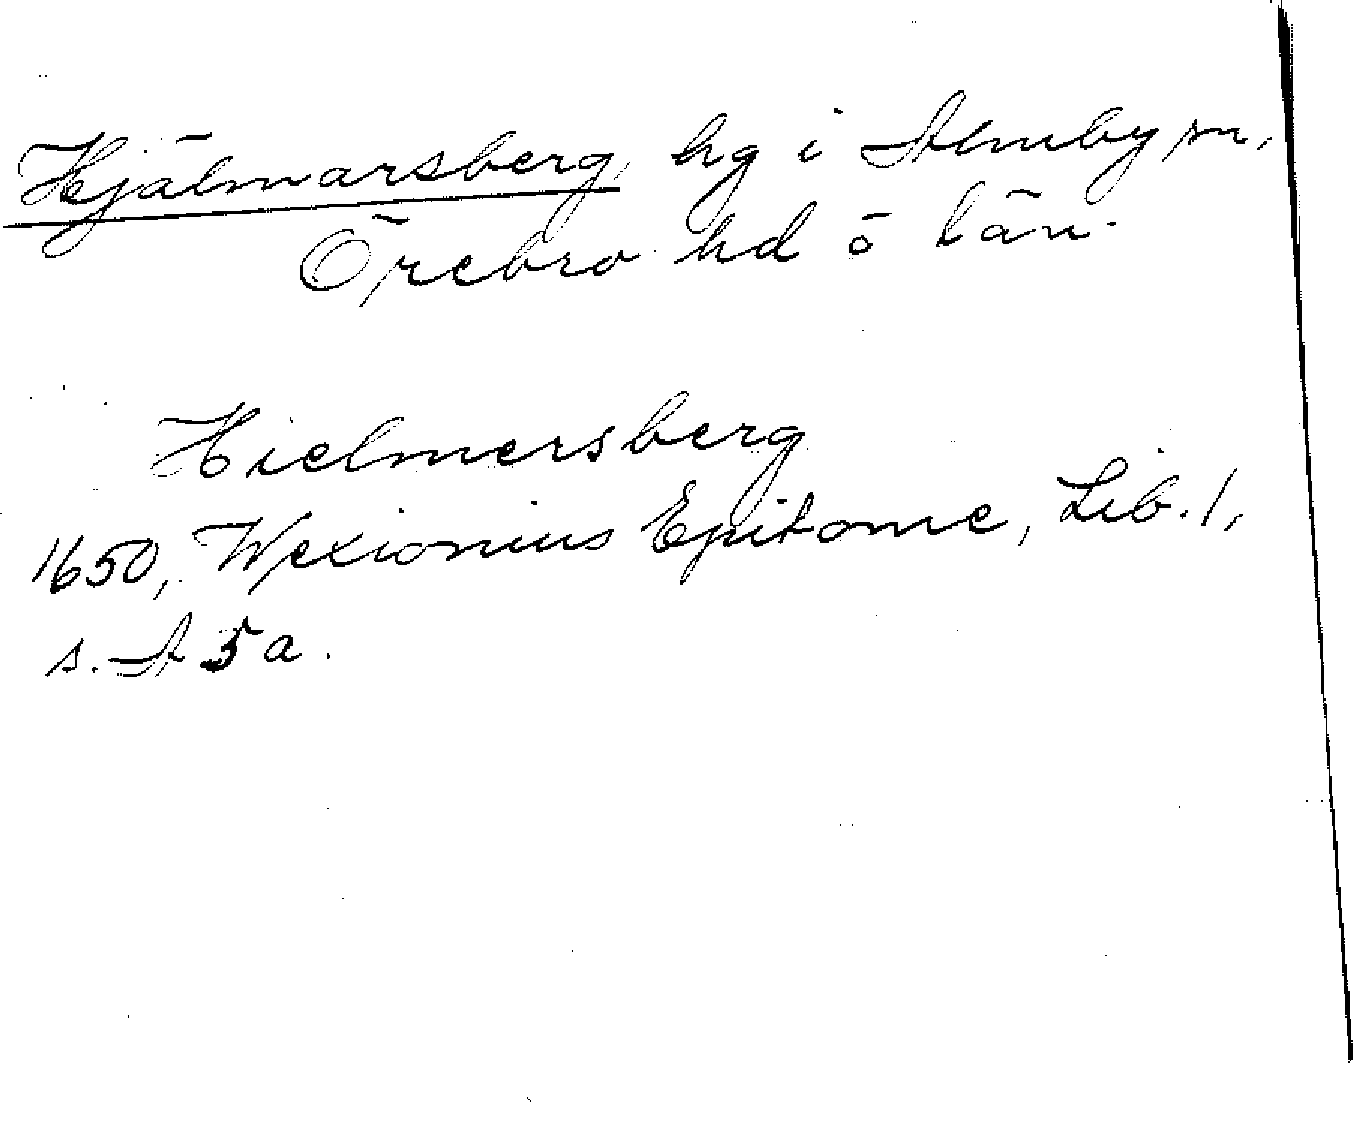 Hjälmarsberg, hg i Almby sn,
Örebro hd ö län.
Hielmersberg
1650, Wexionius Epitome, Lib. 1,
s. A 5 a.